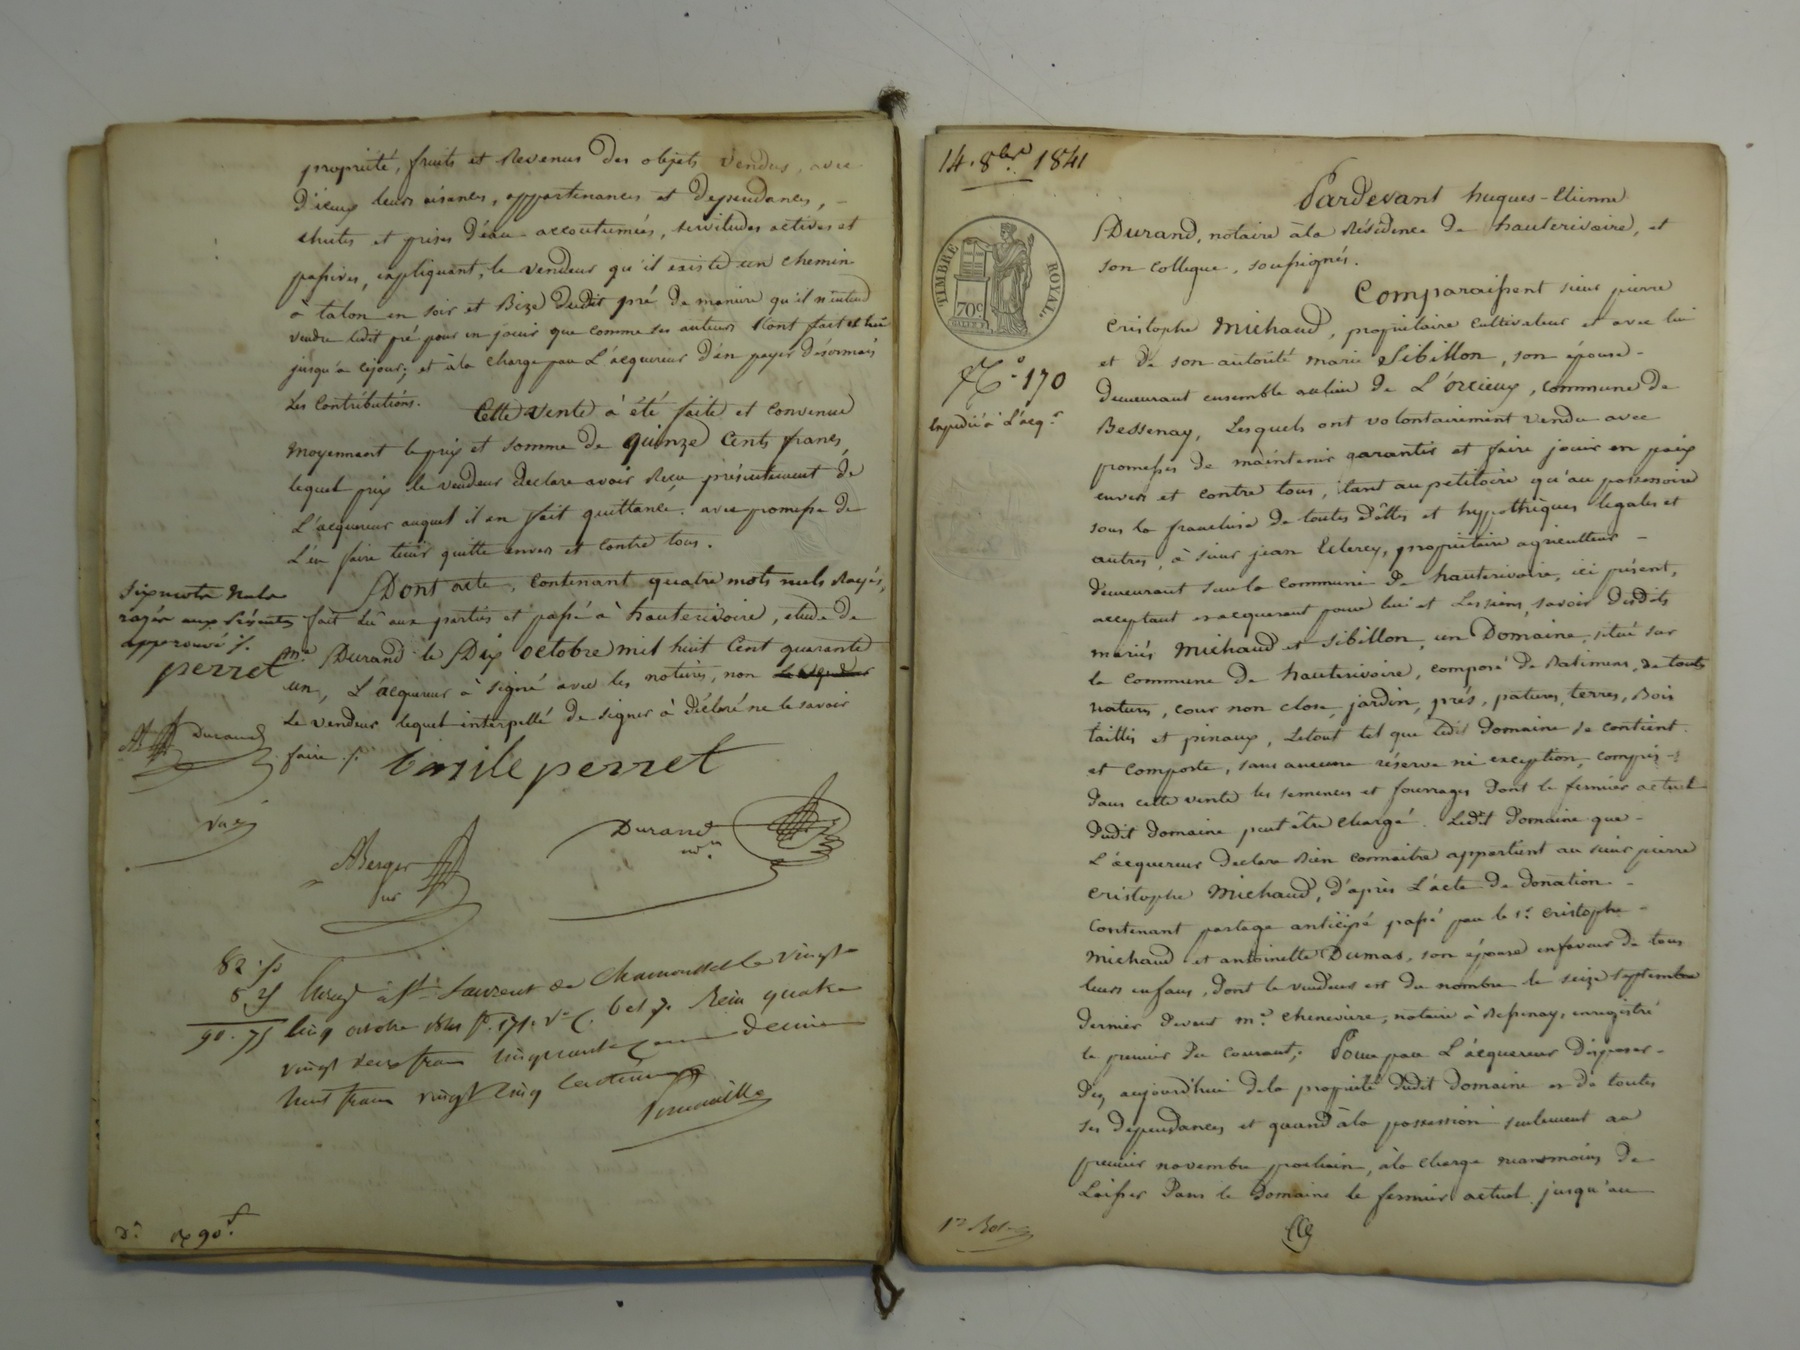 propriété, fruits et Revenus des objets vendus, avec
d'iceux leurs aisances, appartenances et dependances, -
chutes et prises d'éau accoutumées, servitudes actives et
passives, expliquant, le vendeur qu'il existe un chemin
à talon en soir et Bize dudit pré de maniere qu'il n'entend
vendre ledit pré pour en jouir que comme ses auteurs l'ont fait et lui
jusqu'à cejour; et àla charge par L'acquereur d'en payer désormais
Les Contributions.
Cette vente à été faite et convenue
moyennant le prix et somme de quinze Cents francs,
lequel prix le vendeur declare avoir Reçu présentement de
L'acquereur auquel il en fait quittance. avec promesse de
L'en faire tenir quitte envers et contre tous.
Dont acte, contenant quatre mots nuls Rayés,
fait Lu aux parties et passé à hauterivoire, etude de
me. Durand le Dix octobre mil huit Cent quarante
un, L'acquereur à signé avec les notaires, non
Le vendeur lequel interpellé de signer à déclaré ne le savoir
faire ./.
Six mots nuls
rayés aux présentes
approuvé ./.
perret
Durand
Emile perret
Berger
Durand
82.50
8.25
90.75
Enregé à St. Laurent de Chamousset le vingt
Cinq octobre 1841 fo. 171. vo. C. 6 et 7. Reçu quatre
vingt deux francs cinquante c. decime
huit francs vingt cinq Centimes
90.f
14. 8bre. 1841
TIMBRE ROYAL.
70c
No. 170
Expédié à L'acqr.
Pardevant hugues-Etienne
Durand, notaire àla Résidence de hauterivoire, et
son collegue, soussignés.
Comparaissent sieur pierre
cristophe Michaud, propriétaire cultivateur et avec lui
et de son autorité marie Sibillon, son épouse -
demeurant ensemble aulieu de L'orcieux, commune de
Bessenay, Lesquels ont volontairement vendu avec
promesses de maintenir garantir et faire jouir en paix
envers et contre tous, tant au petitoire qu'au possessoire
sous la franchise de toutes dettes et hyppothèques legales et
autres, à sieur jean Eclercy, propriétaire agriculteur -
demeurant sur la Commune de hauterivoire, ici présent,
acceptant et acquerant pour lui et Les siens, savoir desdits
mariés Michaud et Sibillon, un Domaine, situé sur
la Commune de hauterivoire, composé de Batimens, de toutes
natures, cour non close, jardin, prés, patures, terres, Bois
taillis et pinaux, Letout tel que ledit Domaine se contient
et comporte, sans aucune réserve ni exception, compris -
dans cette vente les semences et fourrages dont le fermier actuel
dudit domaine peut être chargé. Ledit Domaine que -
L'acquereur declare Bien connaitre appartient au sieur pierre
cristophe Michaud, d'après L'acte de donation -
contenant partage anticipé passé par le sr. cristophe -
Michaud et antoinette Dumas, son épouse enfaveur de tous
leurs enfans, dont le vendeur est du nombre le seize septembre
dernier devant me. chenevière, notaire à Bessenay, enregistré
le premier du courant; Pour par L'acquereur disposer -
dès aujourd'hui dela propriété dudit Domaine et de toutes
ses dependances et quand àla possession seulement au
premier novembre prochain, àla charge néansmoins de
Laisser dans le Domaine le fermier actuel jusqu'au
1er Rôle